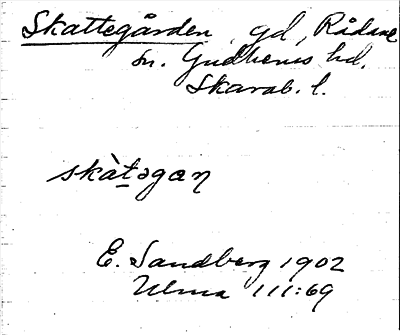 Skattegården, gd, Rådene
sn. Gudhems hd.
Skarab. l.
skàtəgan
E. Sandberg 1902
Ulma 111:69